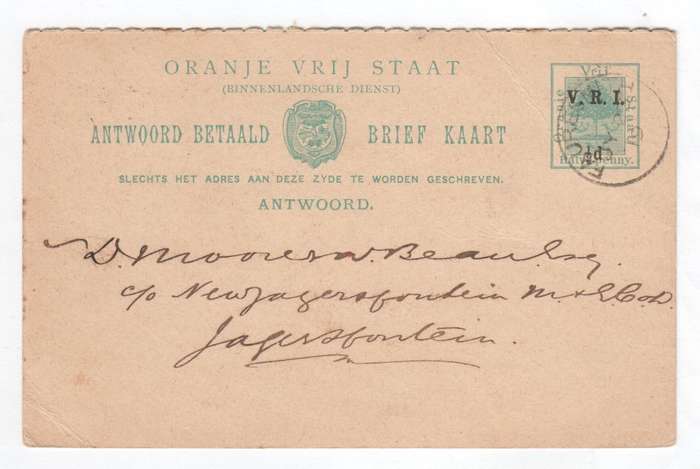 ORANJE VRIJ STAAT
(BINNENLANDSCHE DIENST)
ANTWOORD BETAALD BRIEF KAART
SLECHTS HET ADRES AAN DEZE ZYDE TE WORDEN GESCHREVEN.
ANTWOORD.
Oranje Vrij Staat
V. R. I.
½d
Half penny.
D. Esq.
c/o New Jagersfontein M & E Co Ld.
Jagersfontein.